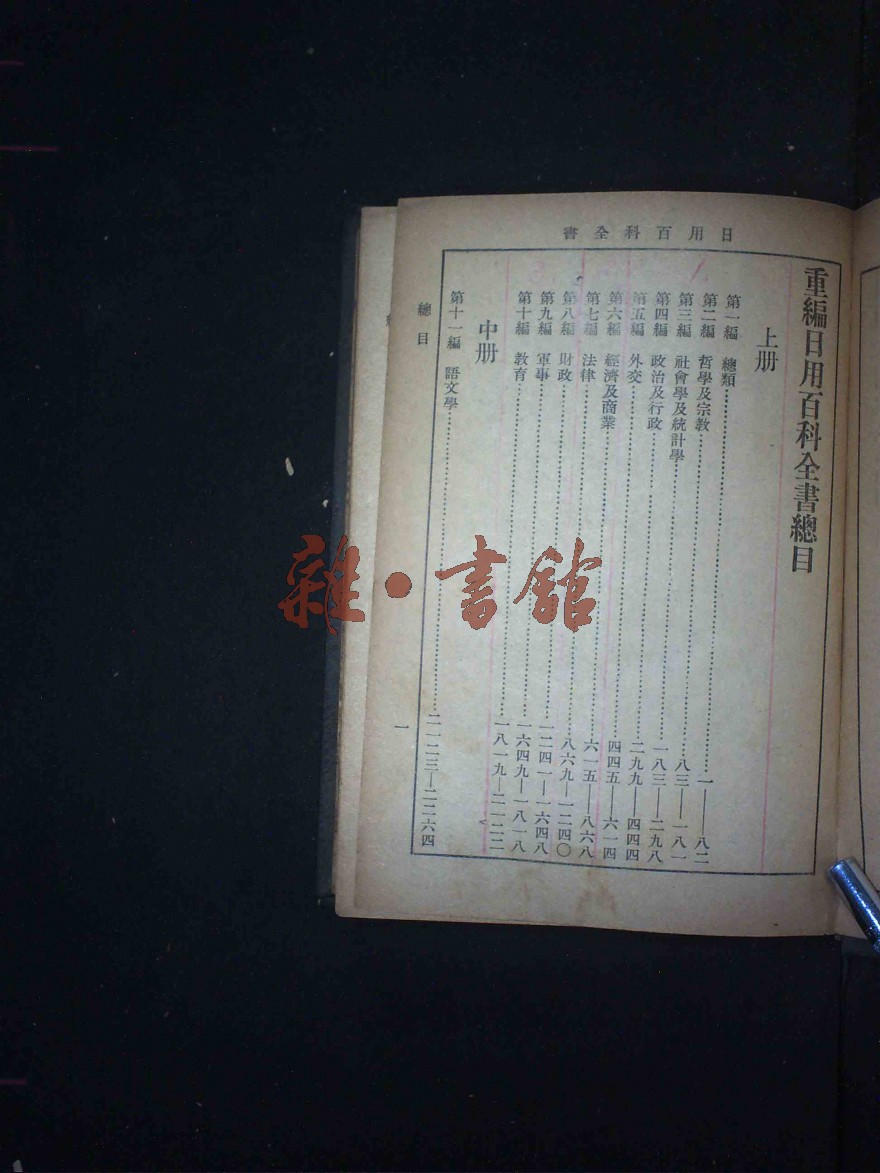 日用百科全書
重編日用百科全書總目
上册
第一編　總類……一——八二
第二編　哲學及宗教……八三——一八一
第三編　社會學及統計學……一八三—二九八
第四編　政治及行政……二九九—四四四
第五編　外交……四四五—六一四
第六編　經濟及商業……六一五—八六八
第七編　法律……八六九—一二四〇
第八編　財政……一二四一—一六四八
第九編　軍事……一六四九—一八一八
第十編　教育……一八一九—二一二二
中册
第十一編　語文學……二一二三—二二六四
總目
一
雜·書舘